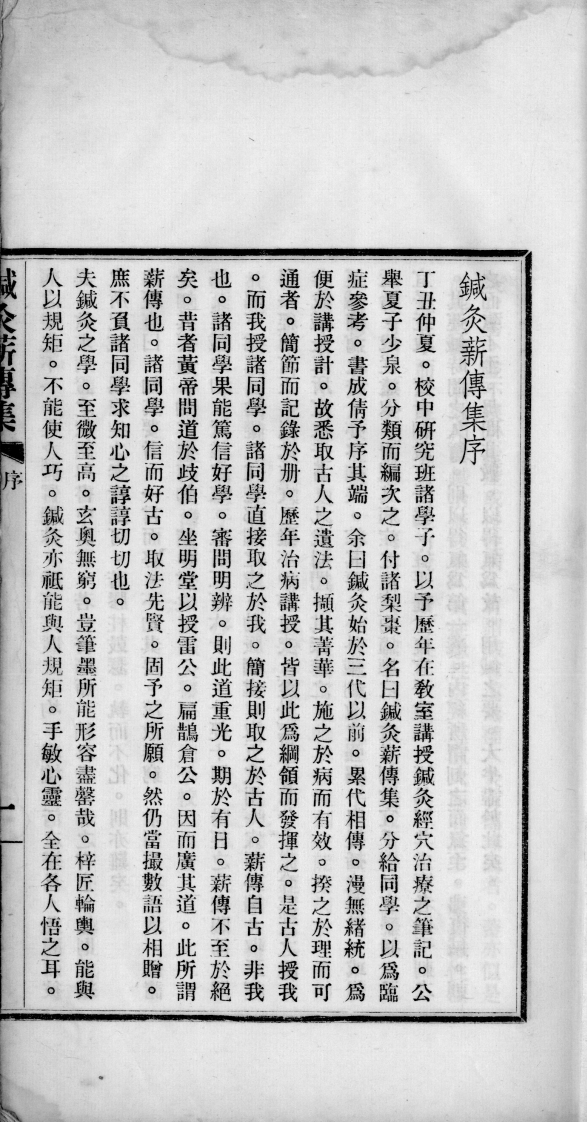 鍼灸薪傳集序
丁丑仲夏。校中研究班諸學子。以予歷年在敎室講授鍼灸經穴治療之筆記。公
舉夏子少泉。分類而編次之。付諸梨棗。名曰鍼灸薪傳集。分給同學。以爲臨
症參考。書成倩予序其端。余曰鍼灸始於三代以前。累代相傳。漫無緒統。爲
便於講授計。故悉取古人之遺法。擷其菁華。施之於病而有效。揆之於理而可
通者。簡節而記錄於册。歷年治病講授。皆以此爲綱領而發揮之。是古人授我
。而我授諸同學。諸同學直接取之於我。簡接則取之於古人。薪傳自古。非我
也。諸同學果能篤信好學。審問明辨。則此道重光。期於有日。薪傳不至於絕
矣。昔者黃帝問道於歧伯。坐明堂以授雷公。扁鵲倉公。因而廣其道。此所謂
薪傳也。諸同學。信而好古。取法先賢。固予之所願。然仍當撮數語以相贈。
庶不負諸同學求知心之諄諄切切也。
夫鍼灸之學。至微至高。玄奧無窮。豈筆墨所能形容盡罄哉。梓匠輪輿。能與
人以規矩。不能使人巧。鍼灸亦祗能與人規矩。手敏心靈。全在各人悟之耳。
鍼灸薪傳集
序
一